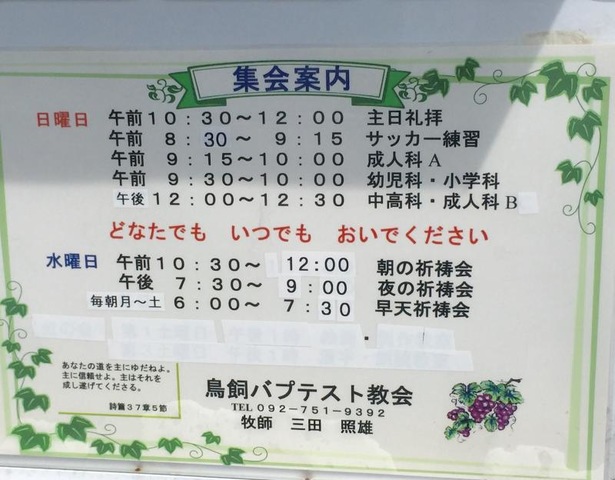 集会案内
日曜日 午前10:30～12:00 主日礼拝
午前 8:30～ 9:15 サッカー練習
午前 9:15～10:00 成人科A
午前 9:30～10:00 幼児科・小学科
午後 12:00～12:30 中高科・成人科B
どなたでも いつでも おいでください
水曜日 午前10:30～ 12:00 朝の祈祷会
午後 7:30～ 9:00 夜の祈祷会
毎朝月～土 6:00～ 7:30 早天祈祷会
・
あなたの道を主にゆだねよ。
主に信頼せよ。主はそれを
成し遂げてくださる。
詩篇37章5節
鳥飼バプテスト教会
TEL 092-751-9392
牧師 三田 照雄